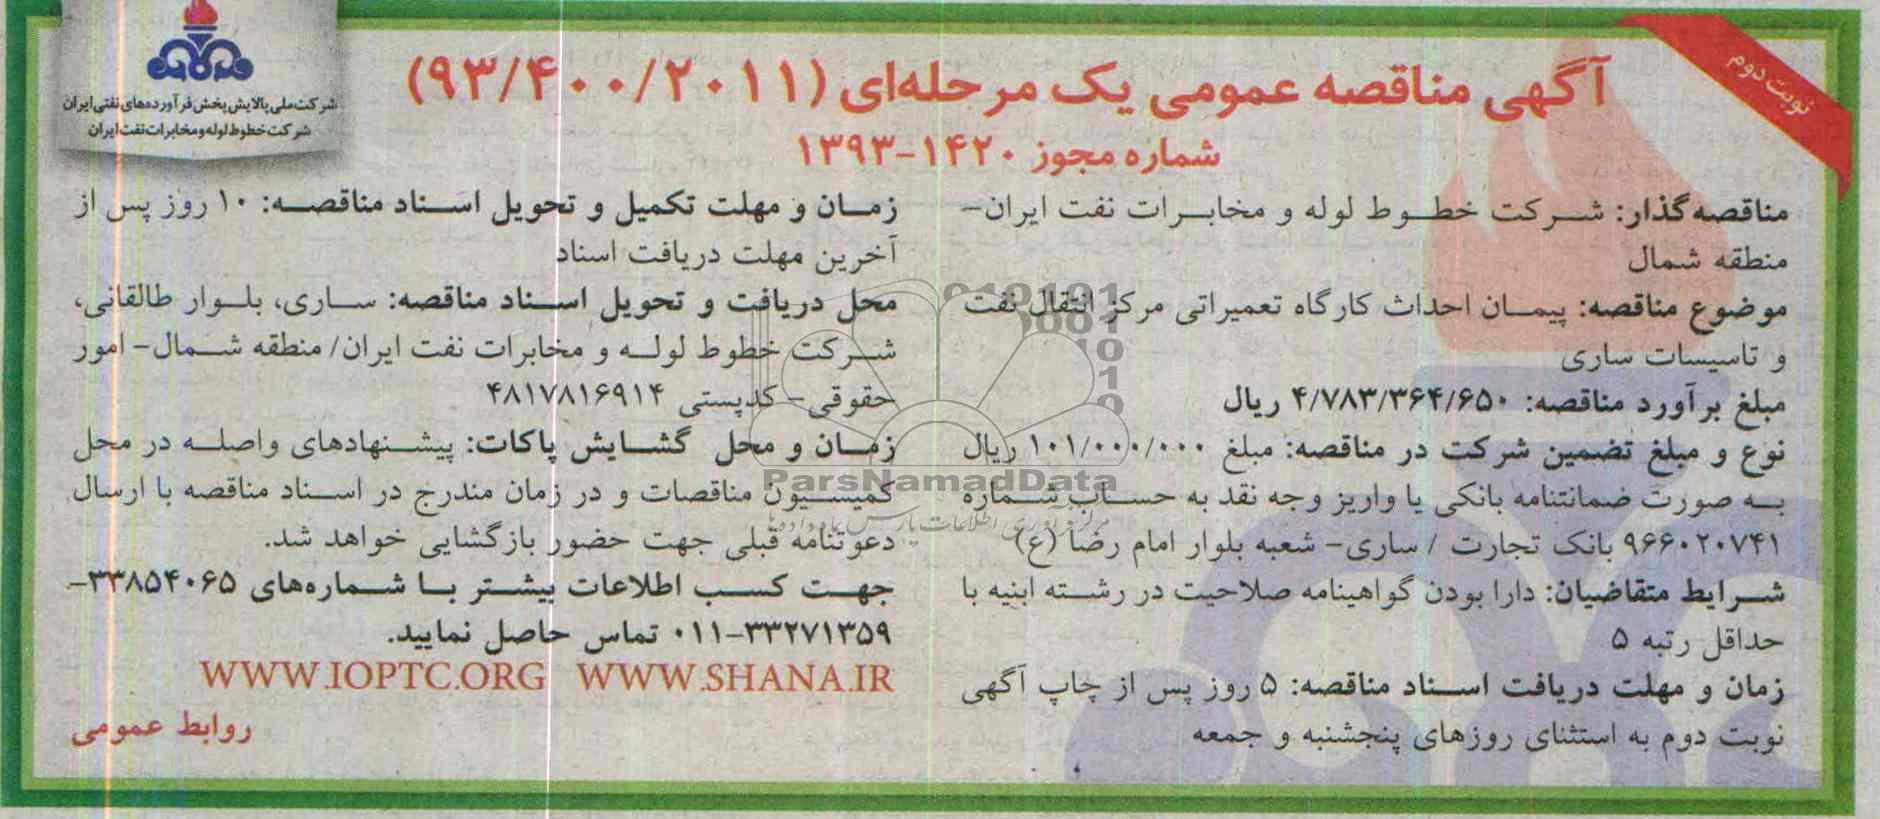 نوبت دوم
شرکت ملی پالایش پخش فرآورده‌های نفتی ایران
شرکت خطوط لوله و مخابرات نفت ایران
آگهی مناقصه عمومی یک مرحله‌ای (۹۳/۴۰۰/۲۰۱۱)
شماره مجوز ۱۴۲۰-۱۳۹۳
مناقصه‌گذار: شرکت خطوط لوله و مخابرات نفت ایران-
منطقه شمال
موضوع مناقصه: پیمان احداث کارگاه تعمیراتی مرکز انتقال نفت
و تاسیسات ساری
مبلغ برآورد مناقصه: ۴/۷۸۳/۳۶۴/۶۵۰ ریال
نوع و مبلغ تضمین شرکت در مناقصه: مبلغ ۱۰۱/۰۰۰/۰۰۰ ریال
به صورت ضمانتنامه بانکی یا واریز وجه نقد به حساب شماره
۹۶۶۰۲۰۷۴۱ بانک تجارت / ساری- شعبه بلوار امام رضا (ع)
شرایط متقاضیان: دارا بودن گواهینامه صلاحیت در رشته ابنیه با
حداقل رتبه ۵
زمان و مهلت دریافت اسناد مناقصه: ۵ روز پس از چاپ آگهی
نوبت دوم به استثنای روزهای پنجشنبه و جمعه
زمان و مهلت تکمیل و تحویل اسناد مناقصه: ۱۰ روز پس از
آخرین مهلت دریافت اسناد
محل دریافت و تحویل اسناد مناقصه: ساری، بلوار طالقانی،
شرکت خطوط لوله و مخابرات نفت ایران/ منطقه شمال- امور
حقوقی- کدپستی ۴۸۱۷۸۱۶۹۱۴
زمان و محل گشایش پاکات: پیشنهادهای واصله در محل
کمیسیون مناقصات و در زمان مندرج در اسناد مناقصه با ارسال
دعوتنامه قبلی جهت حضور بازگشایی خواهد شد.
جهت کسب اطلاعات بیشتر با شماره‌های ۳۳۸۵۴۰۶۵-
۰۱۱-۳۳۲۷۱۳۵۹ تماس حاصل نمایید.
WWW.IOPTC.ORG WWW.SHANA.IR
روابط عمومی
ParsNamadData
مرکز فرآوری اطلاعات پارس نماد داده‌ها